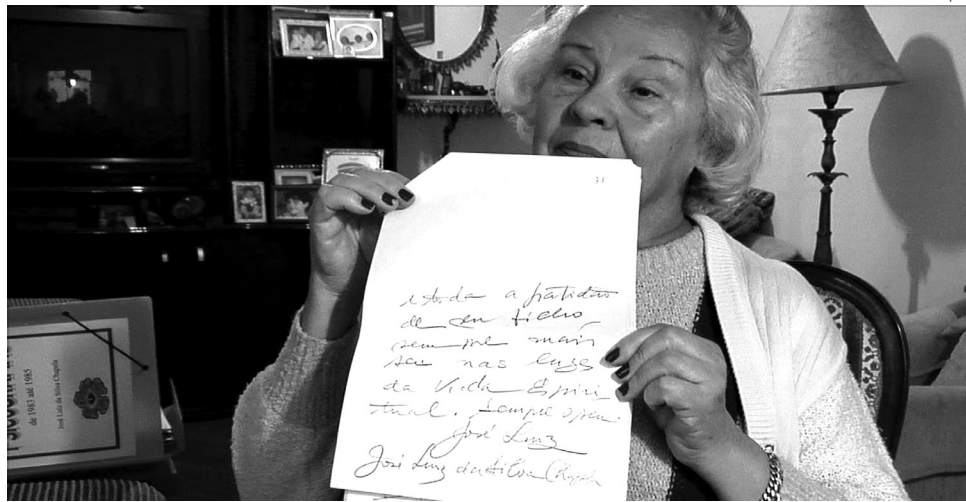 e toda a gratidão
de seu filho,
sempre mais
seu nas luzes
da Vida Espiri
tual. Sempre o seu
José Luiz
José Luiz da Silva Chagala
de 1983 até 1985
José Luiz da Silva Chagala